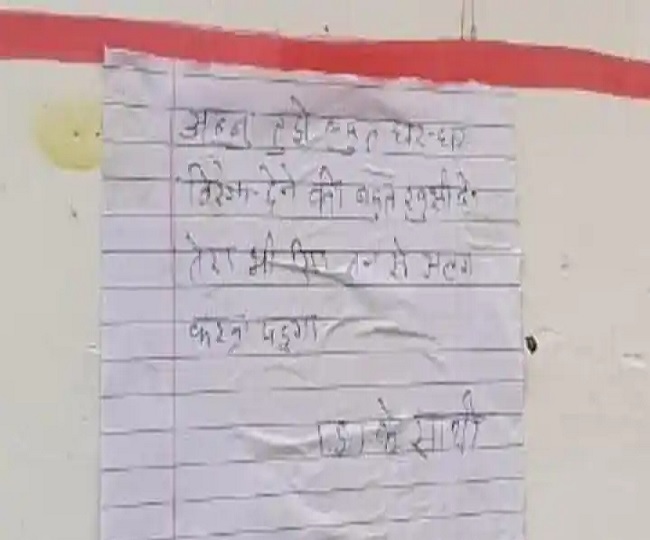 अन्नु तुझे बहुत घर-घर
तिरंगा देने की बहुत खुशी है
तेरा भी सिर तन से अलग
करना पड़ेगा
के साथी